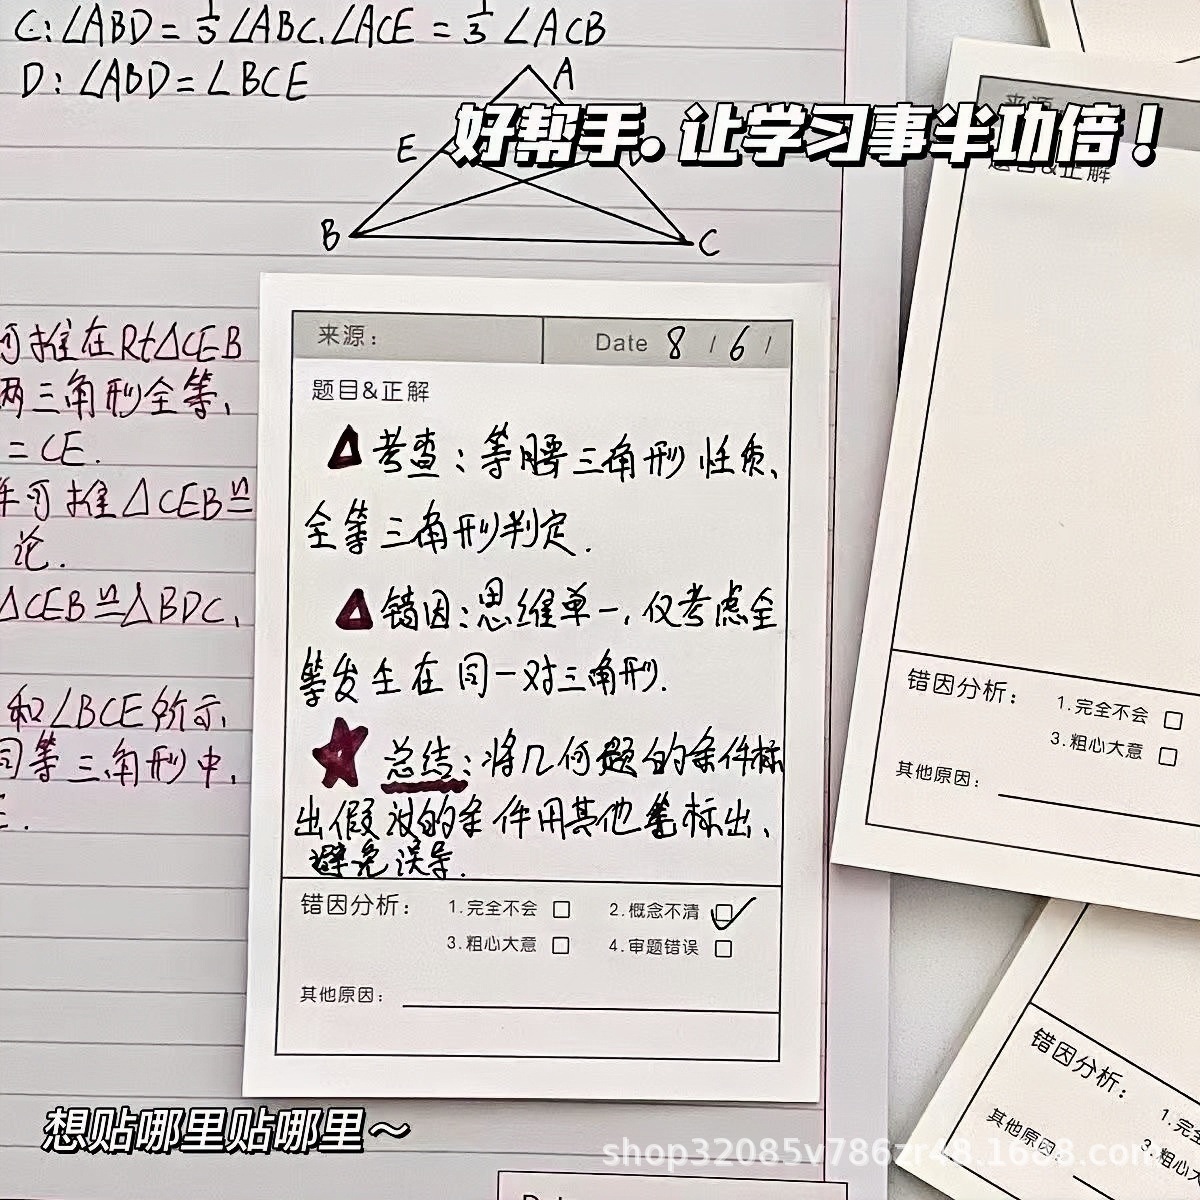 C:∠ABD=⅓∠ABC.∠ACE=⅓∠ACB
D:∠ABD=∠BCE
A
好帮手.让学习事半功倍!
E
B
C
可推在Rt△CEB
两三角形全等、
=CE.
可推△CEB≌
论.
△CEB≌△BDC、
和∠BCE所示、
同等三角形中、
来源:
Date 8 / 6 /
题目&正解
△考查:等腰三角形性质、
全等三角形判定.
△错因:思维单一,仅考虑全
等发生在同一对三角形.
★总结:将几何题的条件标
出假设的条件用其他笔标出、
避免误导.
错因分析: 1.完全不会 □ 2.概念不清 □✓
3.粗心大意 □ 4.审题错误 □
其他原因:
来源
题目&正解
错因分析: 1.完全不会 □
3.粗心大意 □
其他原因:
错因分析:
1.完全
3.粗心
其他原因
想贴哪里贴哪里~
shop32085v786zr48.1688.com